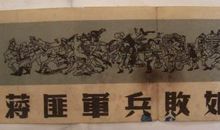 蔣匪軍兵敗如